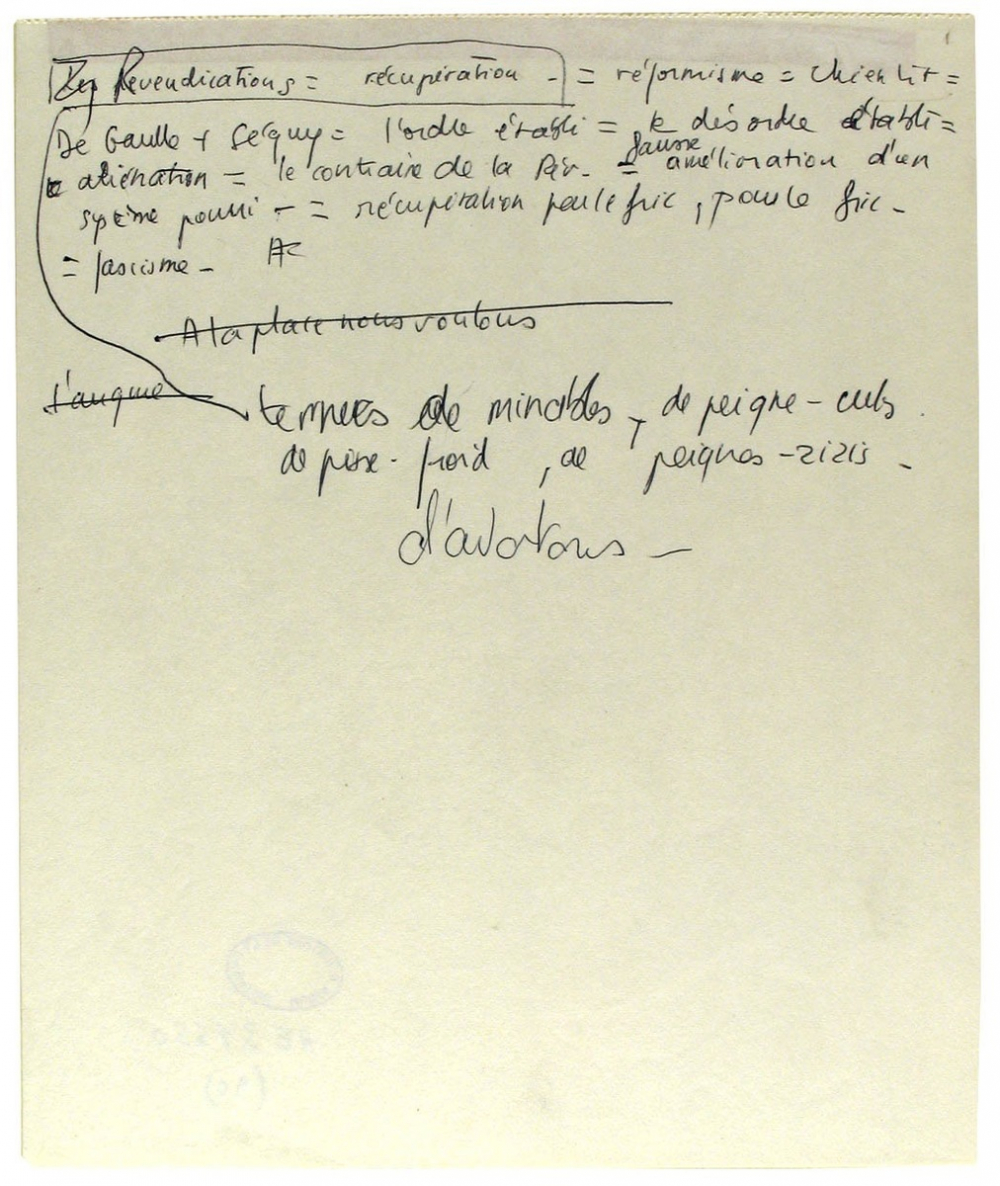 Les Revendications = récupération - = réformisme = chienlit =
De Gaulle + Séguy = l'ordre établi = le désordre établi =
aliénation = le contraire de la Rév. = fausse amélioration d'un
système pourri - = récupération par le fric, pour le fric -
= fascisme -
A la place nous voulons
termes de minables, de peigne-culs
de pisse-froid, de peignes-zizis -
d'avortons -